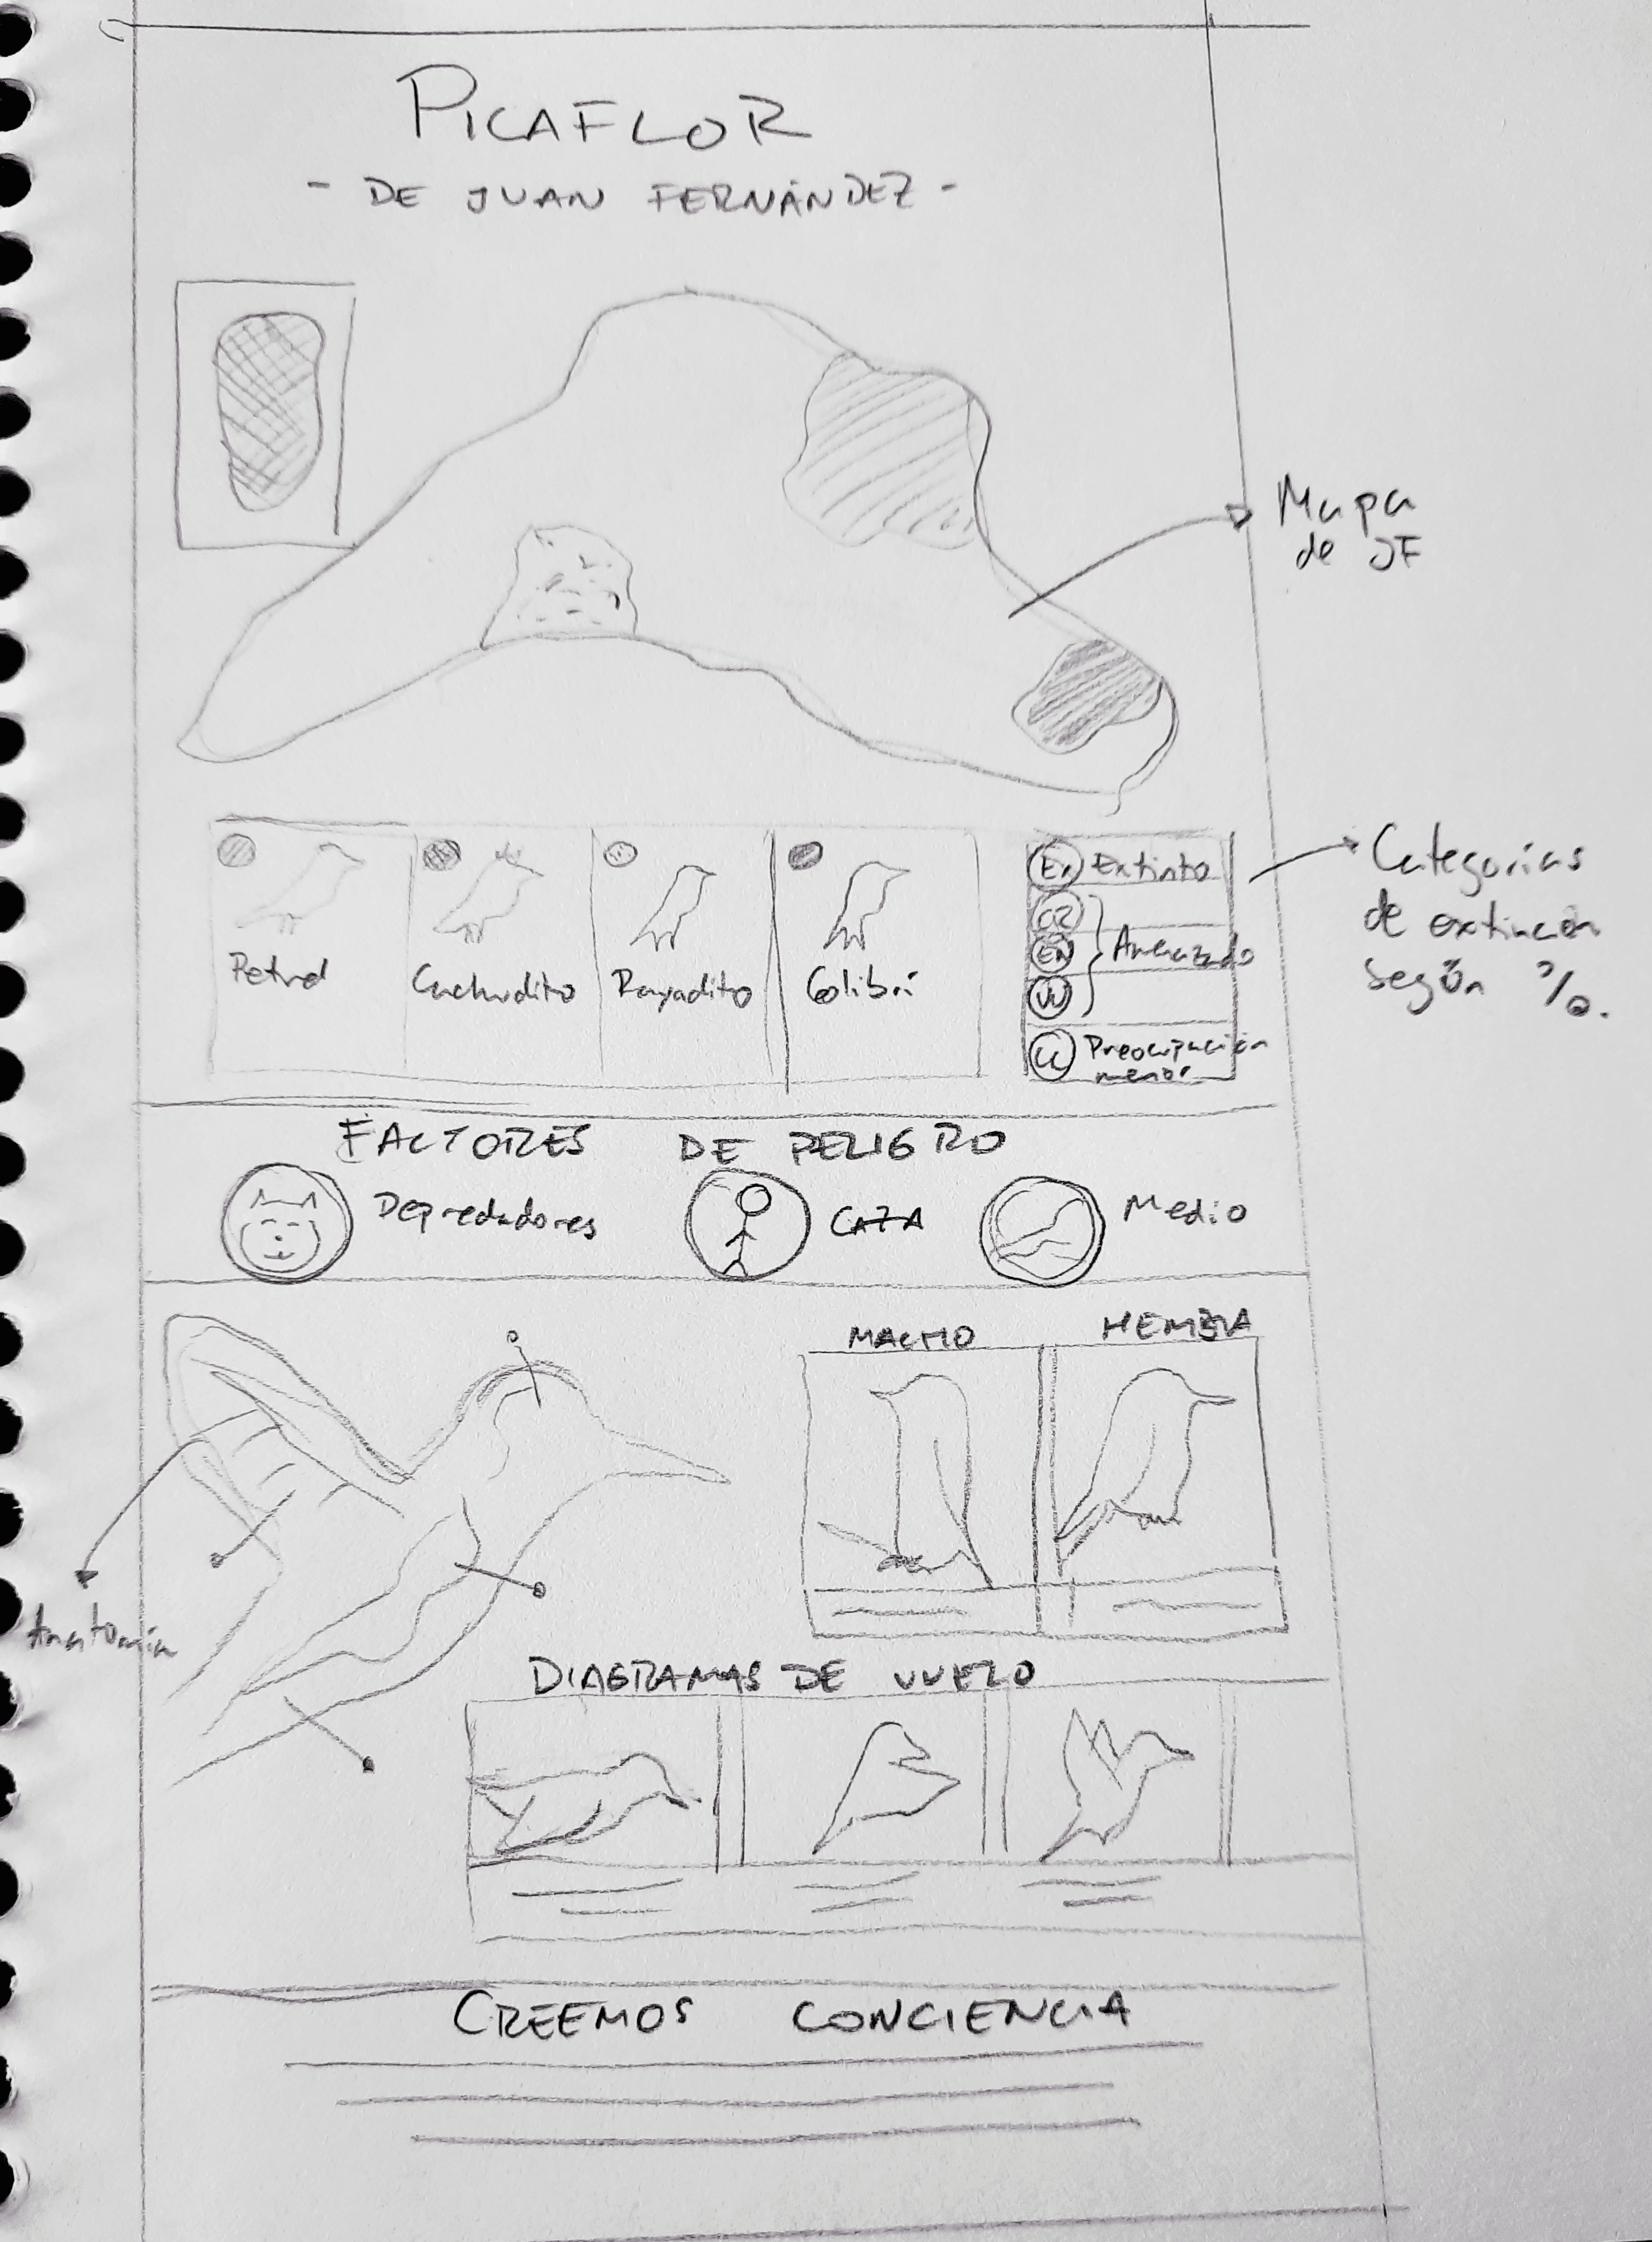 PICAFLOR
- DE JUAN FERNÁNDEZ -
Mapa
de JF
Petrel
Cachudito
Rayadito
Colibrí
Ex Extinto
CR
EN Amenazado
VU
LC Preocupación
menor
Categorías
de extinción
según %.
FACTORES DE PELIGRO
Depredadores
CAZA
Medio
MACHO
HEMBRA
Anatomía
DIAGRAMAS DE VUELO
CREEMOS CONCIENCIA